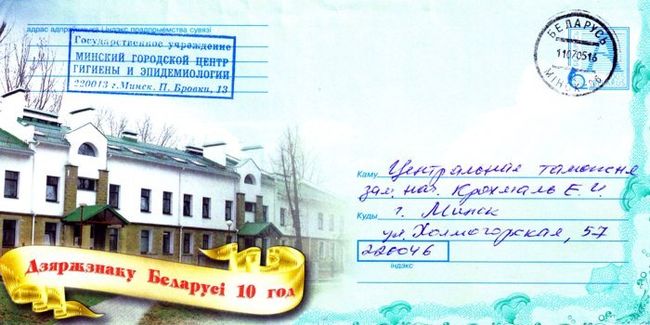 адрас адпраўніка і індэкс прадпрыемства сувязі
Государственное учреждение
МИНСКИЙ ГОРОДСКОЙ ЦЕНТР
ГИГИЕНЫ И ЭПИДЕМИОЛОГИИ
220013 г. Минск. П. Бровки, 13
БЕЛАРУСЬ
11070516
Каму Центральная таможня
зам. нач. Крохмаль Е. И.
Куды г. Минск
ул. Холмогорская, 57
220046
індэкс
Дзяржзнаку Беларусі 10 год